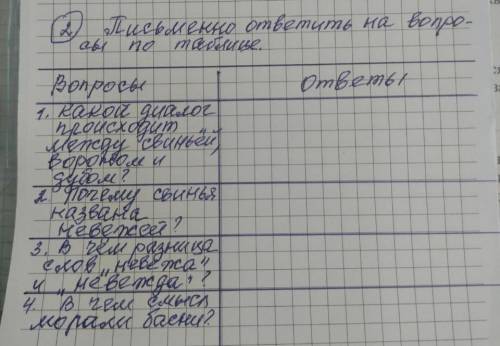 2) Письменно ответить на вопро-
сы по таблице.
Вопросы
ответы
1. Какой диалог
происходит
между свиньёй,
вороном и
дубом?
2. Почему свинья
названа
невежей?
3. В чем разница
слов „невежа"
и „невежда"?
4. В чем смысл
морали басни?